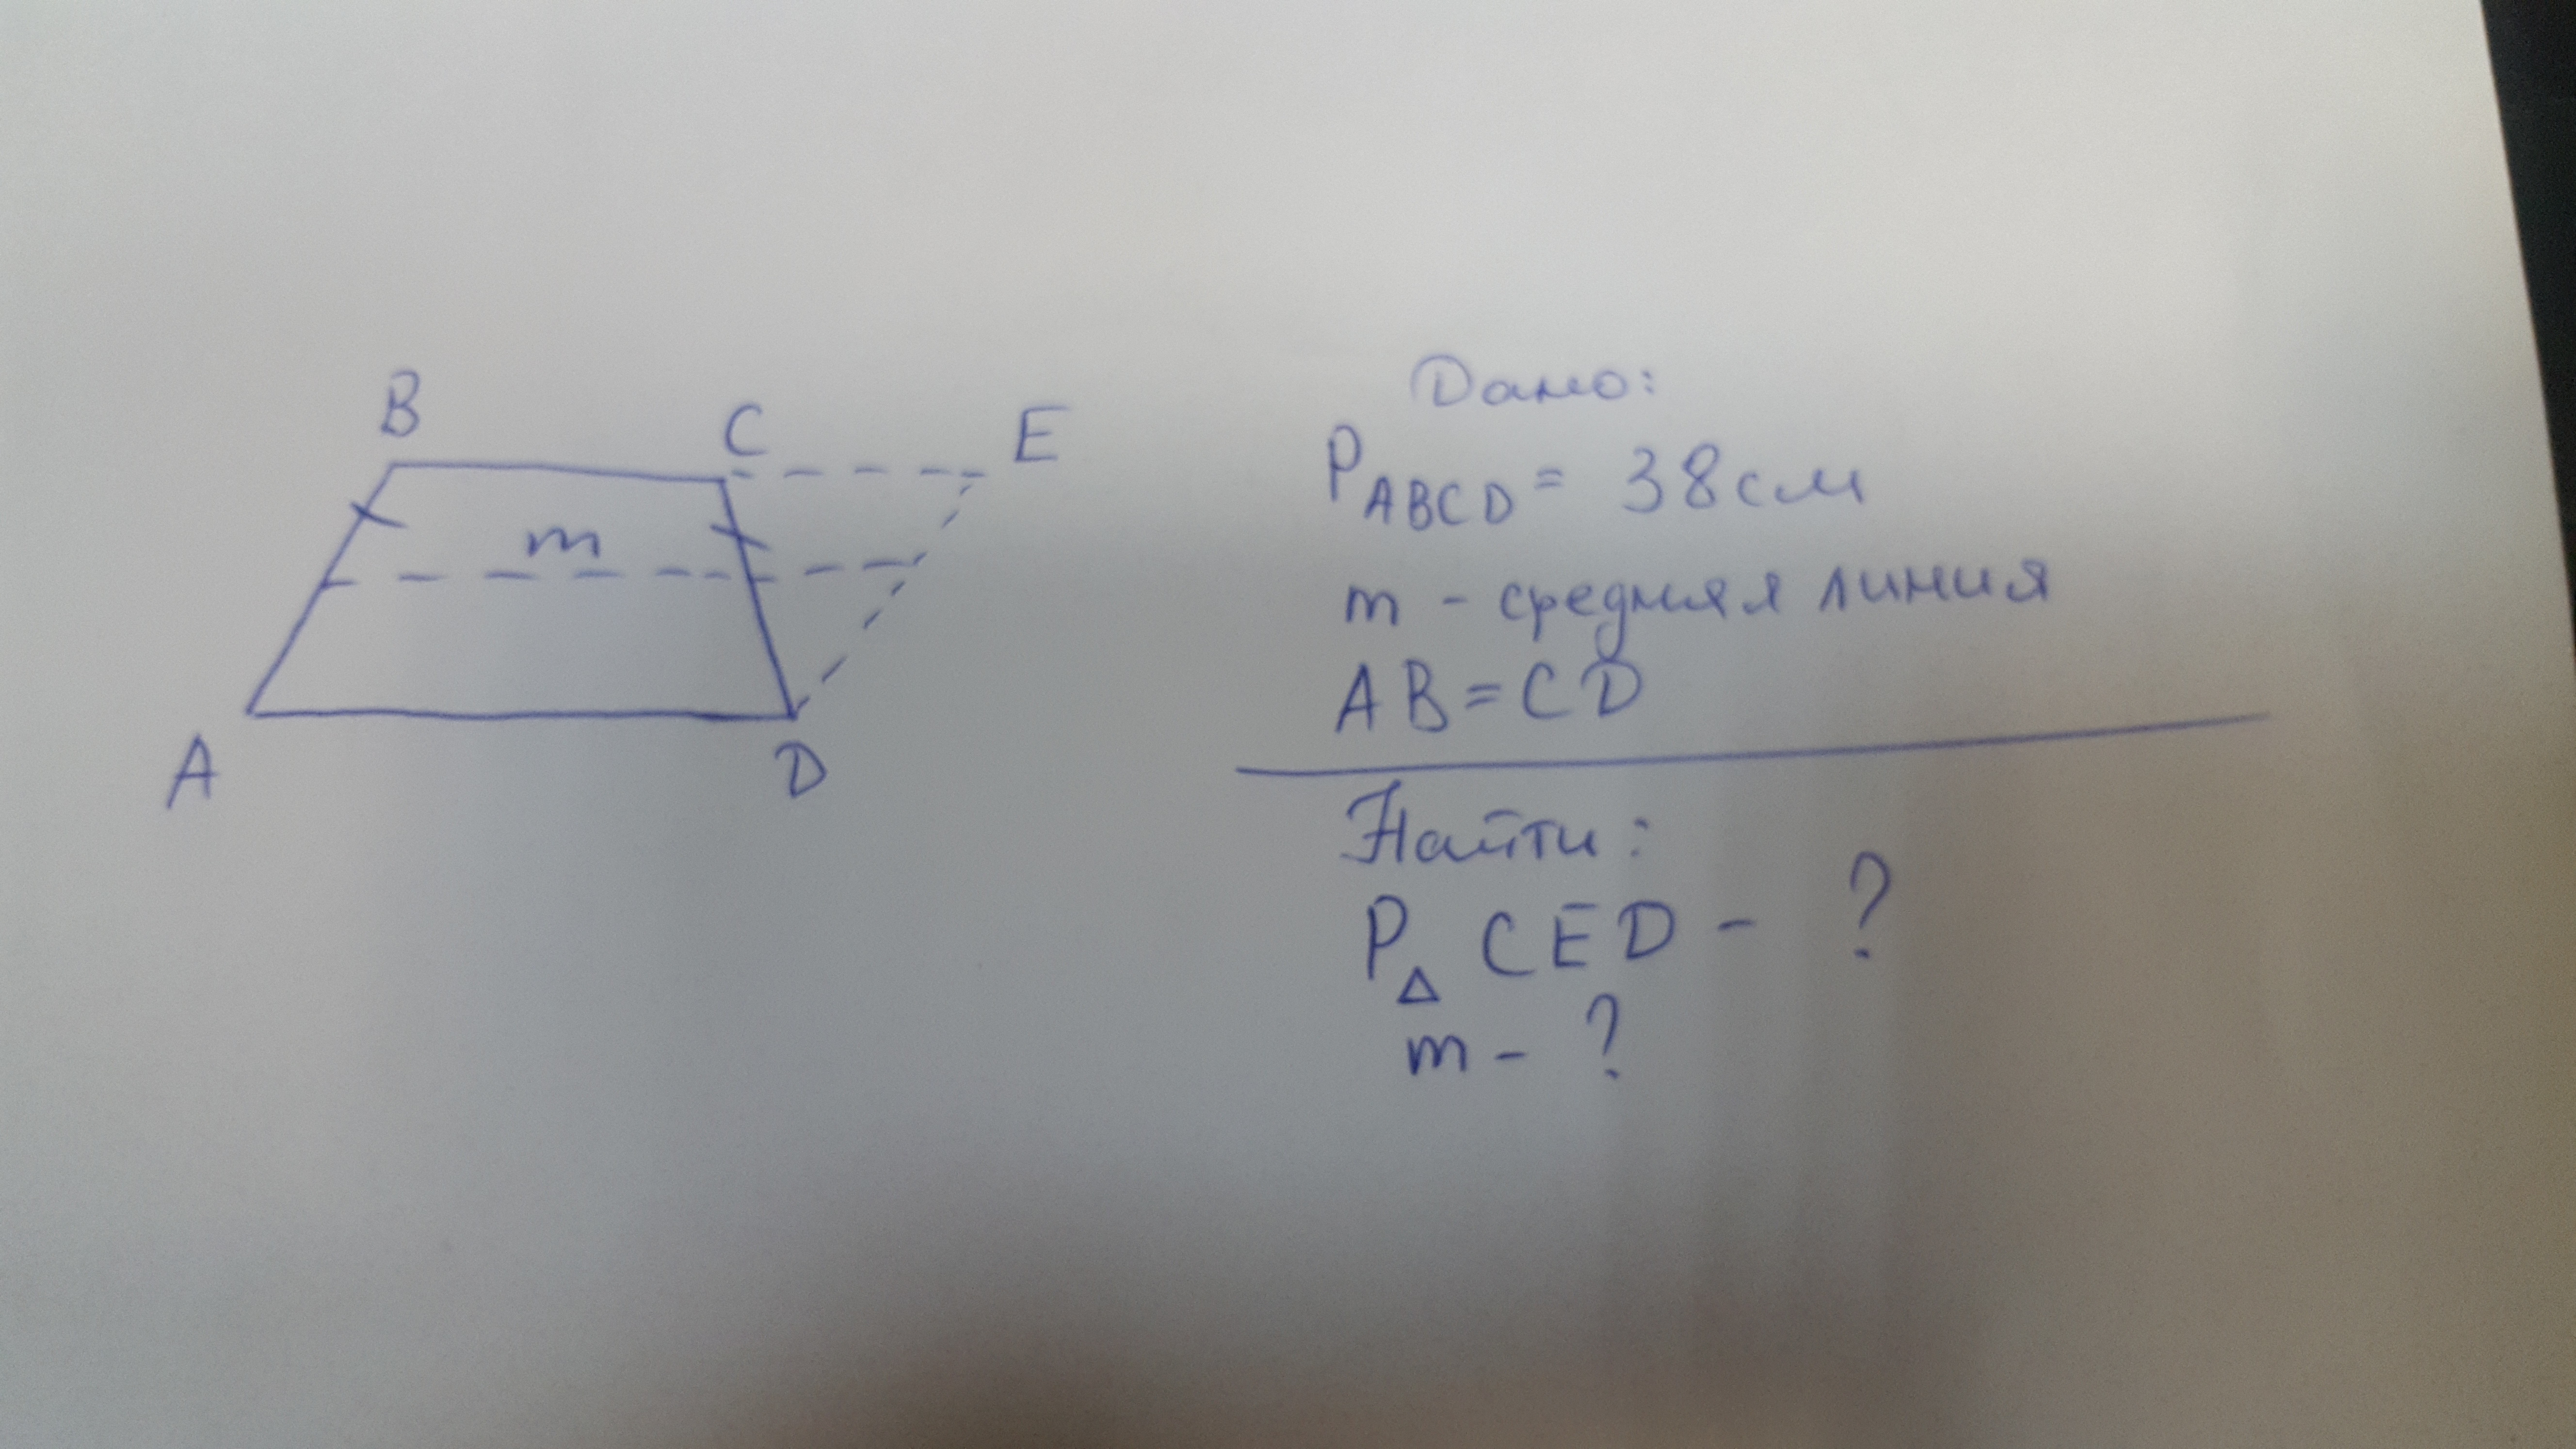 B
C
E
m
A
D
Дано:
P ABCD = 38см
m - средняя линия
AB=CD
Найти:
P△ CED - ?
m - ?